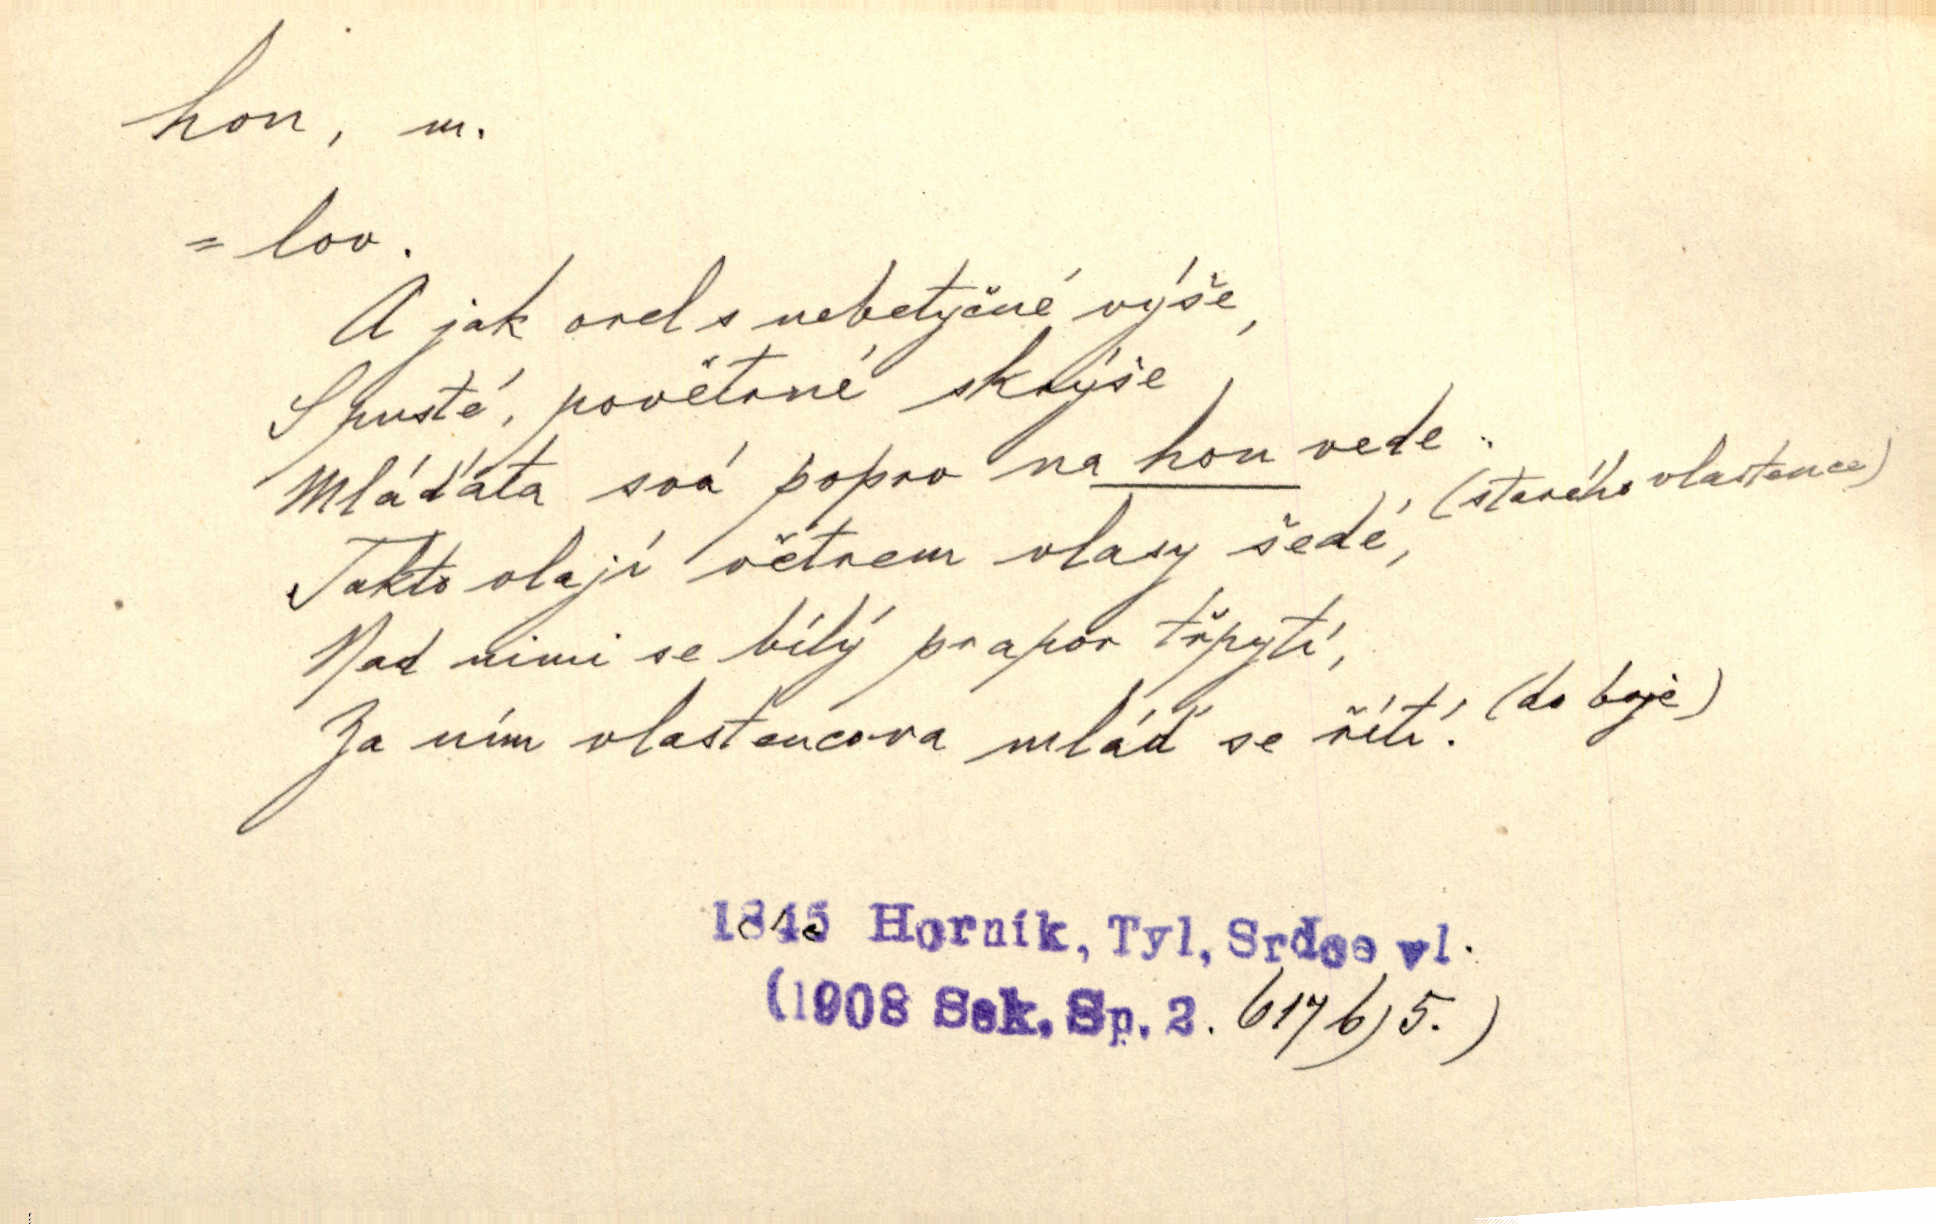 hon, m.
= lov.
A jak orel s nebetyčné výše,
S pusté, povětrné skrýše
Mláďata svá poprv na hon vede:
Takto vlají větrem vlasy šedé, (starého vlastence)
Nad nimi se bílý prapor třpytí,
Za ním vlastencova mláď se řítí! (do boje)
1845 Horník, Tyl, Srdce vl.
(1908 Sek. Sp. 2. 617 b) 5.)